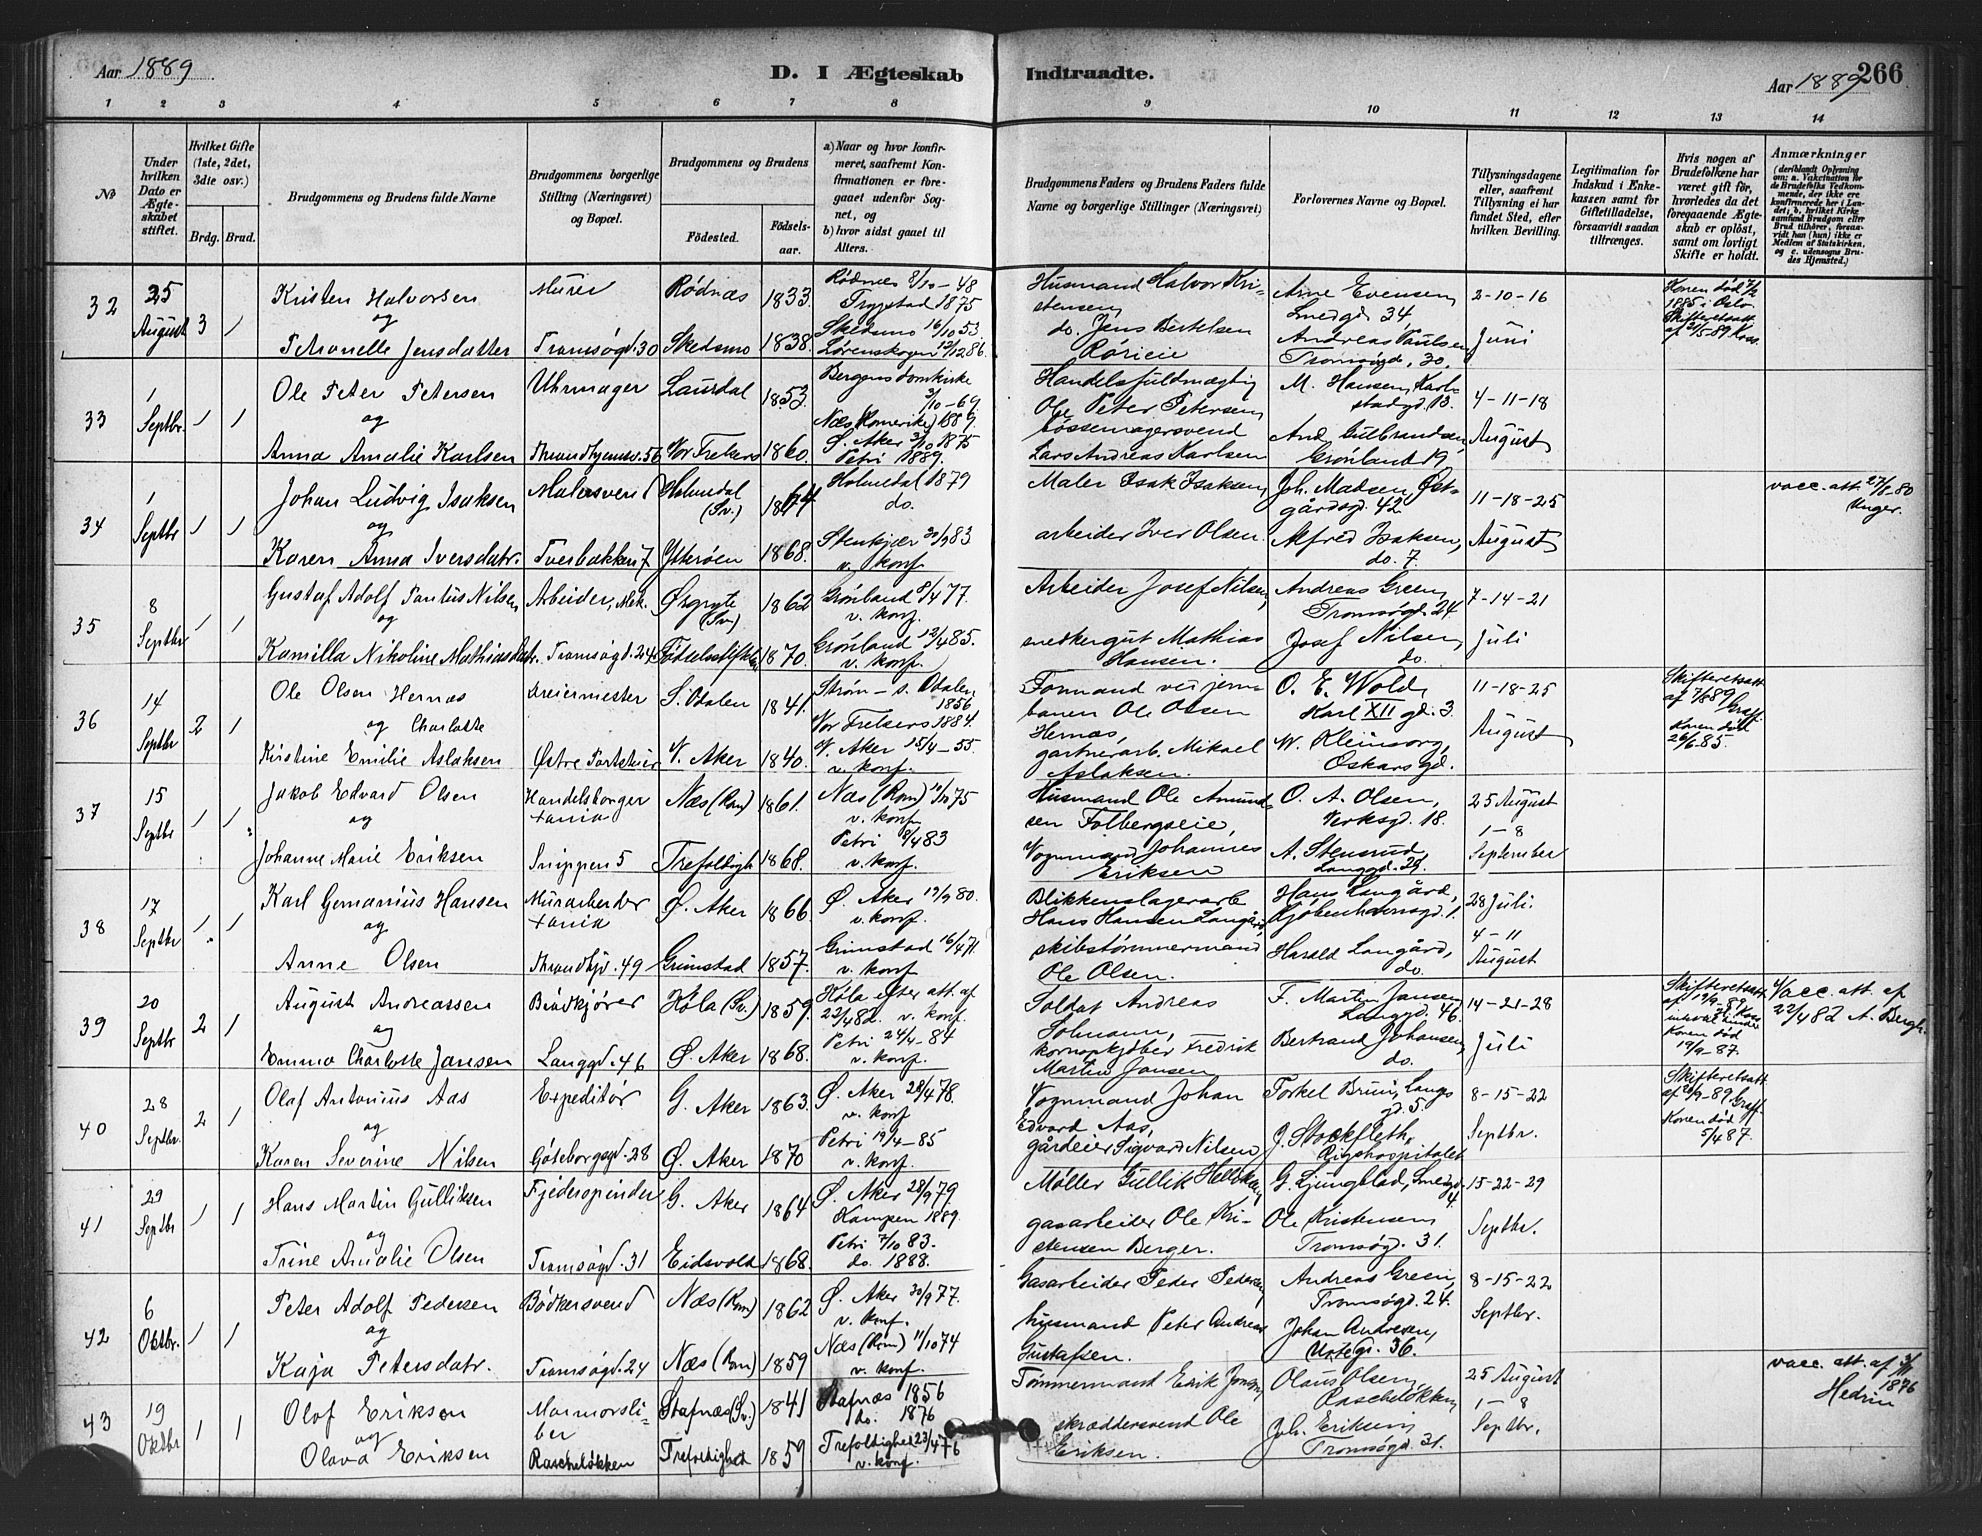 Aar 1889
D. I Ægteskab Indtraadte.
Aar 1889
266
1 2 3 4 5 6 7 8 9 10 11 12 13 14
No
Under hvilken Dato er Ægteskabet stiftet.
Hvilket Gifte (1ste, 2det, 3die osv.)
Brdg. Brud.
Brudgommens og Brudens fulde Navne
Brudgommens borgerlige Stilling (Næringsvei) og Bopæl.
Brudgommens og Brudens
Fødested.
Fødselsaar.
a) Naar og hvor konfirmeret, saafremt Konfirmationen er foregaaet udenfor Sognet, og
b) hvor sidst gaaet til Alters.
Brudgommens Faders og Brudens Faders fulde Navne og borgerlige Stillinger (Næringsvei)
Forlovernes Navne og Bopæl.
Tillysningsdagene eller, saafremt Tillysning ei har fundet Sted, efter hvilken Bevilling.
Legitimation for Indskud i Enkekassen samt for Giftetilladelse, forsaavidt saadan tiltrænges.
Hvis nogen af Brudefolkene har været gift før, hvorledes da det foregaaende Ægteskab er opløst, samt om lovligt Skifte er holdt.
Anmærkninger
32 25 August 3 1
Kristen Halvorsen og Petronelle Jensdatter
Murer Tromsøgd. 30
Rødnæs 1833.
Skedsmo 1838.
Rødnæs 8/10-48
Trygstad 1875
Skedsmo 16/10 53
Lørenskogen 12/12 86.
Husmand Halvor Kristensen,
do. Jens Bertelsen
Arne Evensen, Smedgd 34,
Andreas Paulsen, Tromsøgd. 30.
2-10-16 Juni
Konen død 7/2 1885 i Oslo.
33 1 Septbr. 1 1
Ole Peter Petersen og Anna Amalie Karlsen
Uhrmager Throndhjemsv. 56
Laurdal 1853.
Vor Frelsers 1860.
Bergens domkirke 3/10-69.
Næs (Romerike) 1889.
Ø. Aker 3/10 1875
Petri 1889.
Handelsfuldmægtig Ole Peter Petersen,
bøssemagersvend Lars Andreas Karlsen
M. Hansen, Karlstadgd. 13.
And. Gulbrandsen, Grønland 19,
4-11-18 August
34 1 Septbr 1 1
Johan Ludvig Isaksen og Karen Anna Iversdatr.
Malersvend Tvesbakken 7
Holmedal (Sv.) 1864
Ytterøen 1868.
Holmedal 1879 do.
Stenkjær 30/9 83 v. konf.
Maler Isak Isaksen,
arbeider Iver Olsen.
Joh. Madsen, Østgårdsgd. 42
Alfred Isaksen, do. 7.
11-18-25 August
vacc. att. 27/8-80 Unger.
35 8 Septbr 1 1
Gustaf Adolf Pontus Nilsen og Kamilla Nikoline Mathiasdatr.
Arbeider, Mek. Tromsøgd. 24
Ørgryte (Sv.) 1862
Fødselsstiftelsen 1870.
Grønland 8/4 77. v. konf.
Grønland 12/4 85. v. konf.
Arbeider Josef Nilsen,
snekkergut Mathias Hansen.
Andreas Green, Tromsøgd. 24.
Josef Nilsen, do.
7-14-21 Juli
36 14 Septbr 2 1
Ole Olsen Hernæs og Charlotte Kristine Emilie Aslaksen
Dreiermester
S. Odalen 1841.
V. Aker 1840.
Strøm - S. Odalen 1856
Vor Frelsers 1884.
V. Aker 15/4-55. v. konf.
Formand ved jernbanen Ole Olsen Hernæs,
gartnerarb. Mikael Aslaksen.
O. E. Wold, Karl XII gd. 3
W. Kleinsorg, Oskarsgd.
11-18-25 August
Skifteretsatt. af 7/8 89 Graff.
Konen død 26/6-85.
37 15 Septbr 1 1
Jakob Edvard Olsen og Johanne Marie Eriksen
Handelsborger Xania Snippen 5
Næs (Rom) 1861.
Trefoldigh 1868.
Næs (Rom) 11/10 75 v. konf.
Petri 8/4 83 v. konf.
Husmand Ole Amundsen Folbergseie,
Vognmand Johannes Eriksen
O. A. Olsen, Verksgd. 18.
A. Stensrud, Langgd. 29.
25 August 1-8 September
38 17 Septbr 1 1
Karl Gemanius Hansen og Anne Olsen
Murarbeider Xania Throndhjd. 49
Ø. Aker 1866
Grimstad 1857.
Ø. Aker 19/9 80. v. konf.
Grimstad 16/4 71. v. konf
Blikkenslagerarb. Hans Hansen Langård,
skibstømmermand Ole Olsen.
Hans Langård, Kjøbenhavnsgd. 1.
Harald Langård, do.
28 Juli. 4-11 August
39 20 Septbr 2 1
August Andreassen og Emma Charlotte Jansen
Brødkjører Langgd. 46
Köla (Sv.) 1859
Ø. Aker 1868.
Köla efter att. af 22/4 82. v. konf.
Petri 24/4-84 v. konf.
Soldat Andreas Solmann,
kornopkjøber Fredrik Martin Jansen
F. Martin Jansen, Langgd. 46.
Bertrand Johansen, do.
14-21-28 Juli
Skifteretsatt. af 19/9-89
Konen død 19/9-87.
Vacc. att. af 22/4 82 A. Bergh.
40 28 Septbr. 2 1
Olaf Antonius Aas og Karen Severine Nilsen
Expeditør Göteborgsgd. 28
G. Aker 1863.
Ø. Aker 1870
Ø. Aker 28/4 78. v. konf
Petri 19/4-85 v. konf.
Vognmand Johan Edvard Aas,
gårdeier Sigvard Nilsen
Torkel Bruu, Langgd. 5.
J. Stockfleth, Rigshospitalet
8-15-22 Septbr.
Skifteretsatt. af 26/9-89 Graff.
Konen død 5/4 87.
41 29 Septbr 1 1
Hans Martin Gulliksen og Trine Amalie Olsen
Fjederspinder Tromsøgd. 31
G. Aker 1864
Eidsvold 1868.
Ø. Aker 28/9 79
Kampen 1889.
Petri 7/10 83. do. 1888.
Møller Gullik
gasarbeider Ole Kristensen Berger.
G. Ljungblad, Smedgd. 4.
Ole Kristensen, Tromsøgd. 31.
15-22-29 Septbr.
42 6 Oktbr. 1 1
Peter Adolf Pedersen og Kaja Petersdatr.
Bødkersvend Tromsøgd. 24
Næs (Rom) 1862
Næs (Rom) 1859
Ø. Aker 30/9 77. v. konf.
Næs (Rom) 11/10 74 v. konf.
Gasarbeider Peder Pedersen,
husmand Peter Andreas Gustafsen.
Andreas Green, Tromsøgd. 24.
Johan Andresen, Urtegd. 36.
8-15-22 Septbr.
43 19 Oktbr 1 1
Olof Eriksen og Olava Eriksen
Marmorsliber Rascheløkken
Stafnæs (Sv.) 1841
Trefoldighed 1859
Stafnæs 1856 do. 1876
Trefoldighed 23/4 76 v. konf.
Tømmermand Erik Jonsen,
skræddersvend Ole Eriksen.
Olaus Olsen, Rascheløkken,
Joh. Eriksen, Tromsøgd. 31.
25 August 1-8 Septbr.
vacc. att. af 3/11 1876 Hedrin